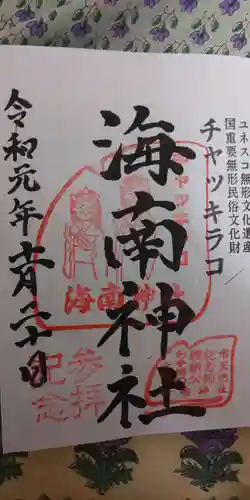 ユネスコ無形文化遺産
国重要無形民俗文化財
チャッキラコ
海南神社
令和元年十一月二十日
海南神社
参拝
記念